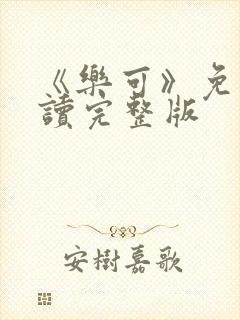 《樂可》免
讀完整版
安樹嘉歌